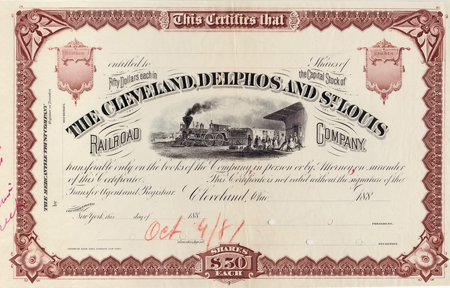 This Certifies that
entitled to Shares of
Fifty Dollars each in the Capital Stock of
THE CLEVELAND, DELPHOS AND ST. LOUIS
RAILROAD COMPANY,
transferable only on the books of the Company in person or by Attorney on surrender
of this Certificate. This Certificate is not valid without the signature of the
Transfer Agent and Registrar.
Cleveland, Ohio 188
New York, this day of 188
Oct 9/81
PRESIDENT.
SHARES
$50
EACH
THE MERCANTILE TRUST COMPANY
Registrar of Transfers
by